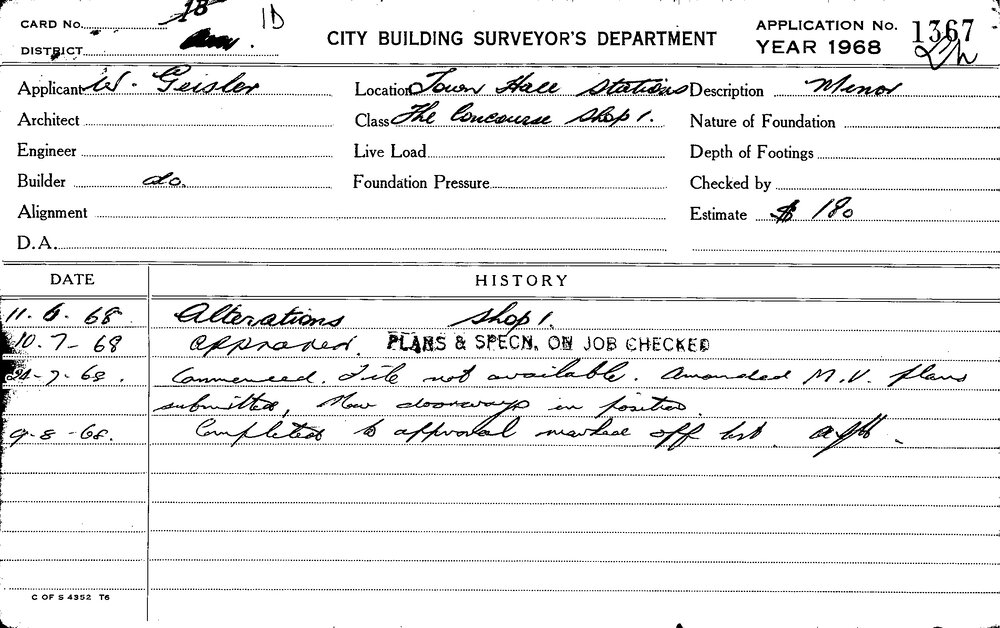 CARD No. 18 1D
DISTRICT
CITY BUILDING SURVEYOR'S DEPARTMENT
APPLICATION No. 1367
YEAR 1968
Applicant W. Geisler
Location Town Hall Station
Description Minor
Architect
Class The Concourse Shop 1.
Nature of Foundation
Engineer
Live Load
Depth of Footings
Builder do.
Foundation Pressure
Checked by
Alignment
Estimate $ 180
D.A.
DATE HISTORY
11. 6. 68. Alterations Shop 1.
10. 7 - 68 approved. PLANS & SPECN. ON JOB CHECKED
24-7-68. Commenced. File not available. Amended M.V. plans
submitted, New doorways in position.
9-8-68. Completed to approval marked off list.
C OF S 4352 T6